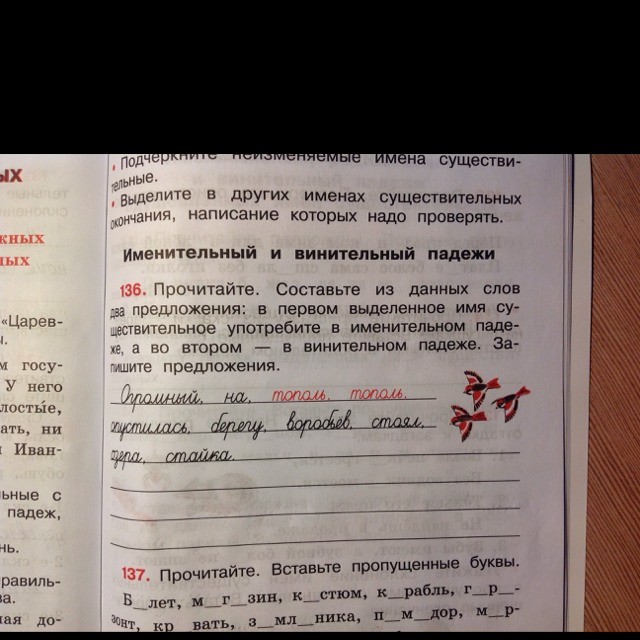 ых
жных
ных
«Царев-
ы.
м госу-
У него
лостые,
ать, ни
Иван-
ьные с
падеж,
нь.
равиль-
ва.
ная до-
• Подчеркните неизменяемые имена существи-
тельные.
• Выделите в других именах существительных
окончания, написание которых надо проверять.
Именительный и винительный падежи
136. Прочитайте. Составьте из данных слов
два предложения: в первом выделенное имя су-
ществительное употребите в именительном паде-
же, а во втором — в винительном падеже. За-
пишите предложения.
Огромный, на, тополь, тополь,
опустилась, берегу, воробьёв, стоял,
озера, стайка.
137. Прочитайте. Вставьте пропущенные буквы.
Б__лет, м__г__зин, к__стюм, к__рабль, г__р__-
зонт, кр__вать, з__мл__ника, п__м__дор, м__р-